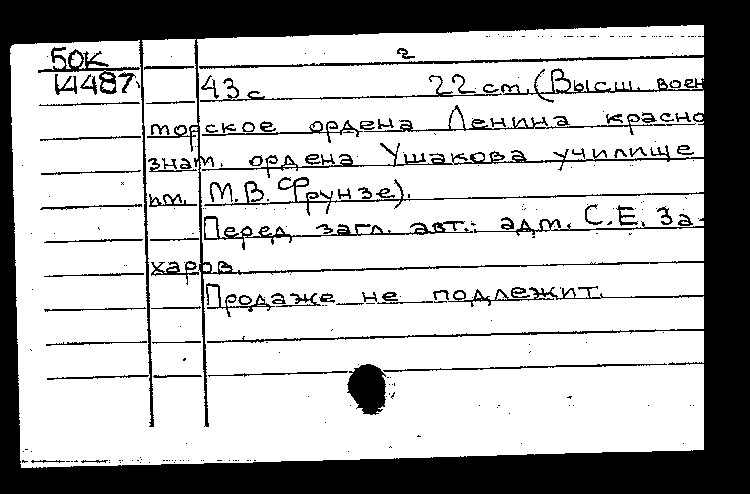 50К 2
14487 43 с 22 cm. (Высш. воен
морское ордена Ленина красно
знам. ордена Ушакова училище
им. М.В. Фрунзе).
Перед загл. авт.: адм. С.Е. За-
харов.
Продаже не подлежит.